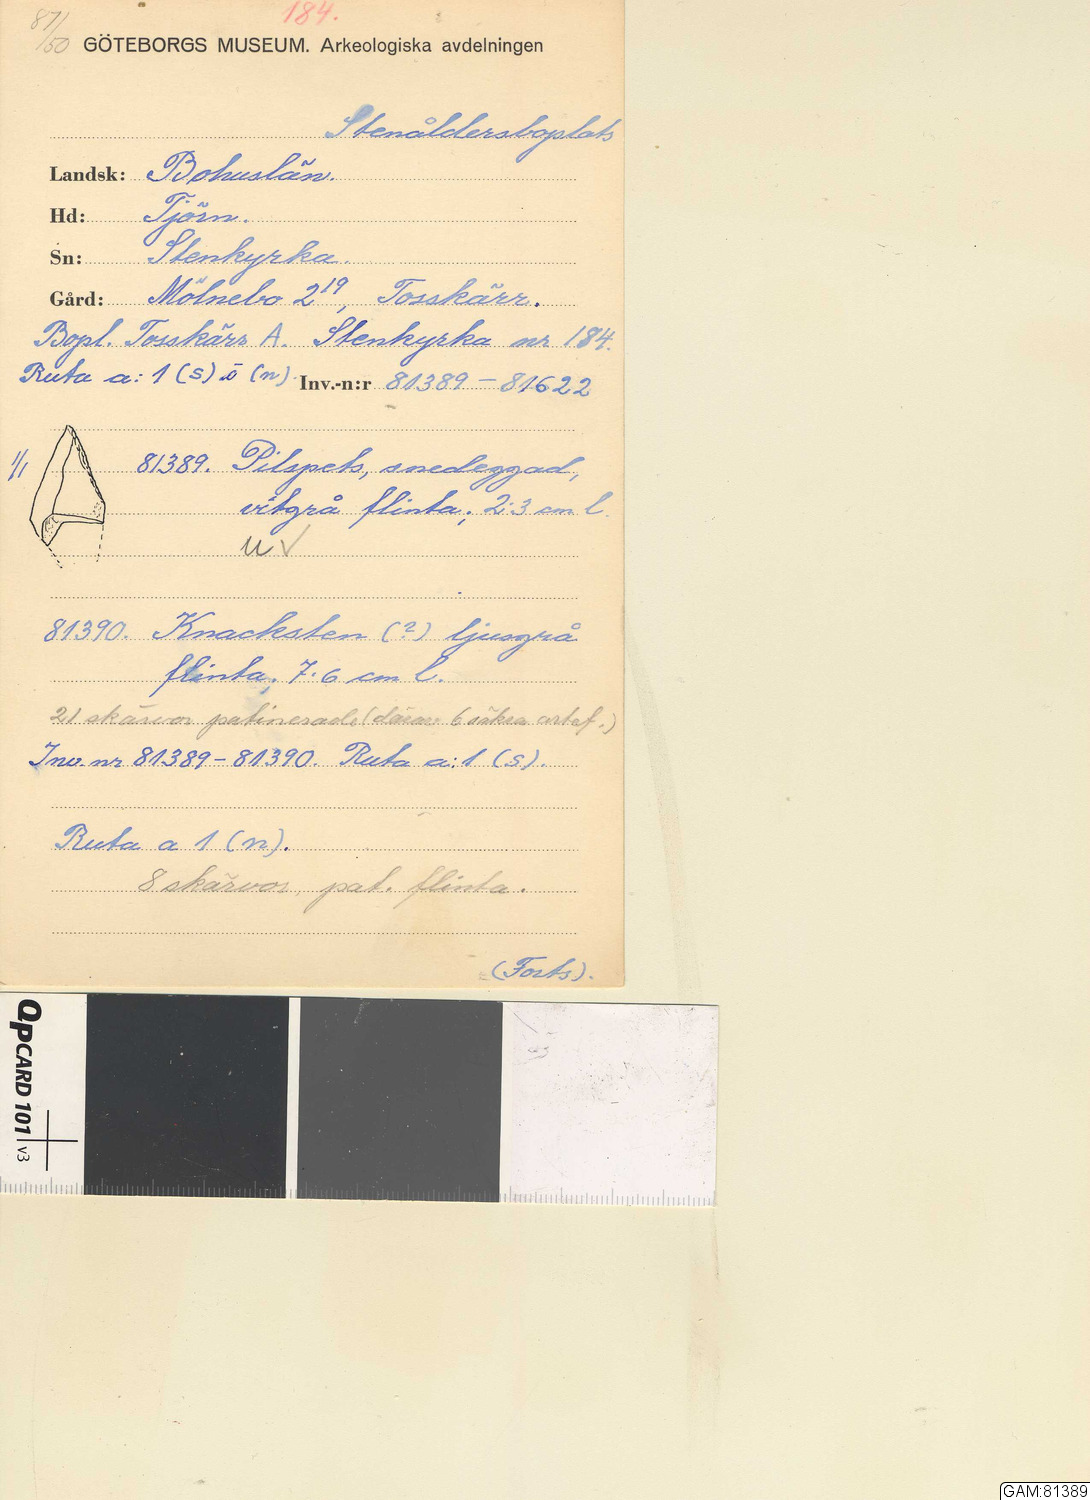 87/50
184.
GÖTEBORGS MUSEUM. Arkeologiska avdelningen
Stenåldersboplats
Landsk: Bohuslän.
Hd: Tjörn.
Sn: Stenkyrka.
Gård: Mölnebo 2¹⁹, Tosskärr.
Bopl. Tosskärr A. Stenkyrka nr 184.
Ruta a: 1 (s) o (n). Inv.-n:r 81389 – 81622
1/1 81389. Pilspets, snedeggad,
vitgrå flinta; 2.3 cm l.
u ✓
81390. Knacksten (?) ljusgrå
flinta; 7.6 cm l.
21 skärvor patinerade (därav 6 säkra artef.)
Inv. nr 81389 – 81390. Ruta a: 1 (s).
Ruta a 1 (n).
8 skärvor, pat. flinta.
(Forts).
QPCARD 101 v3
GAM:81389